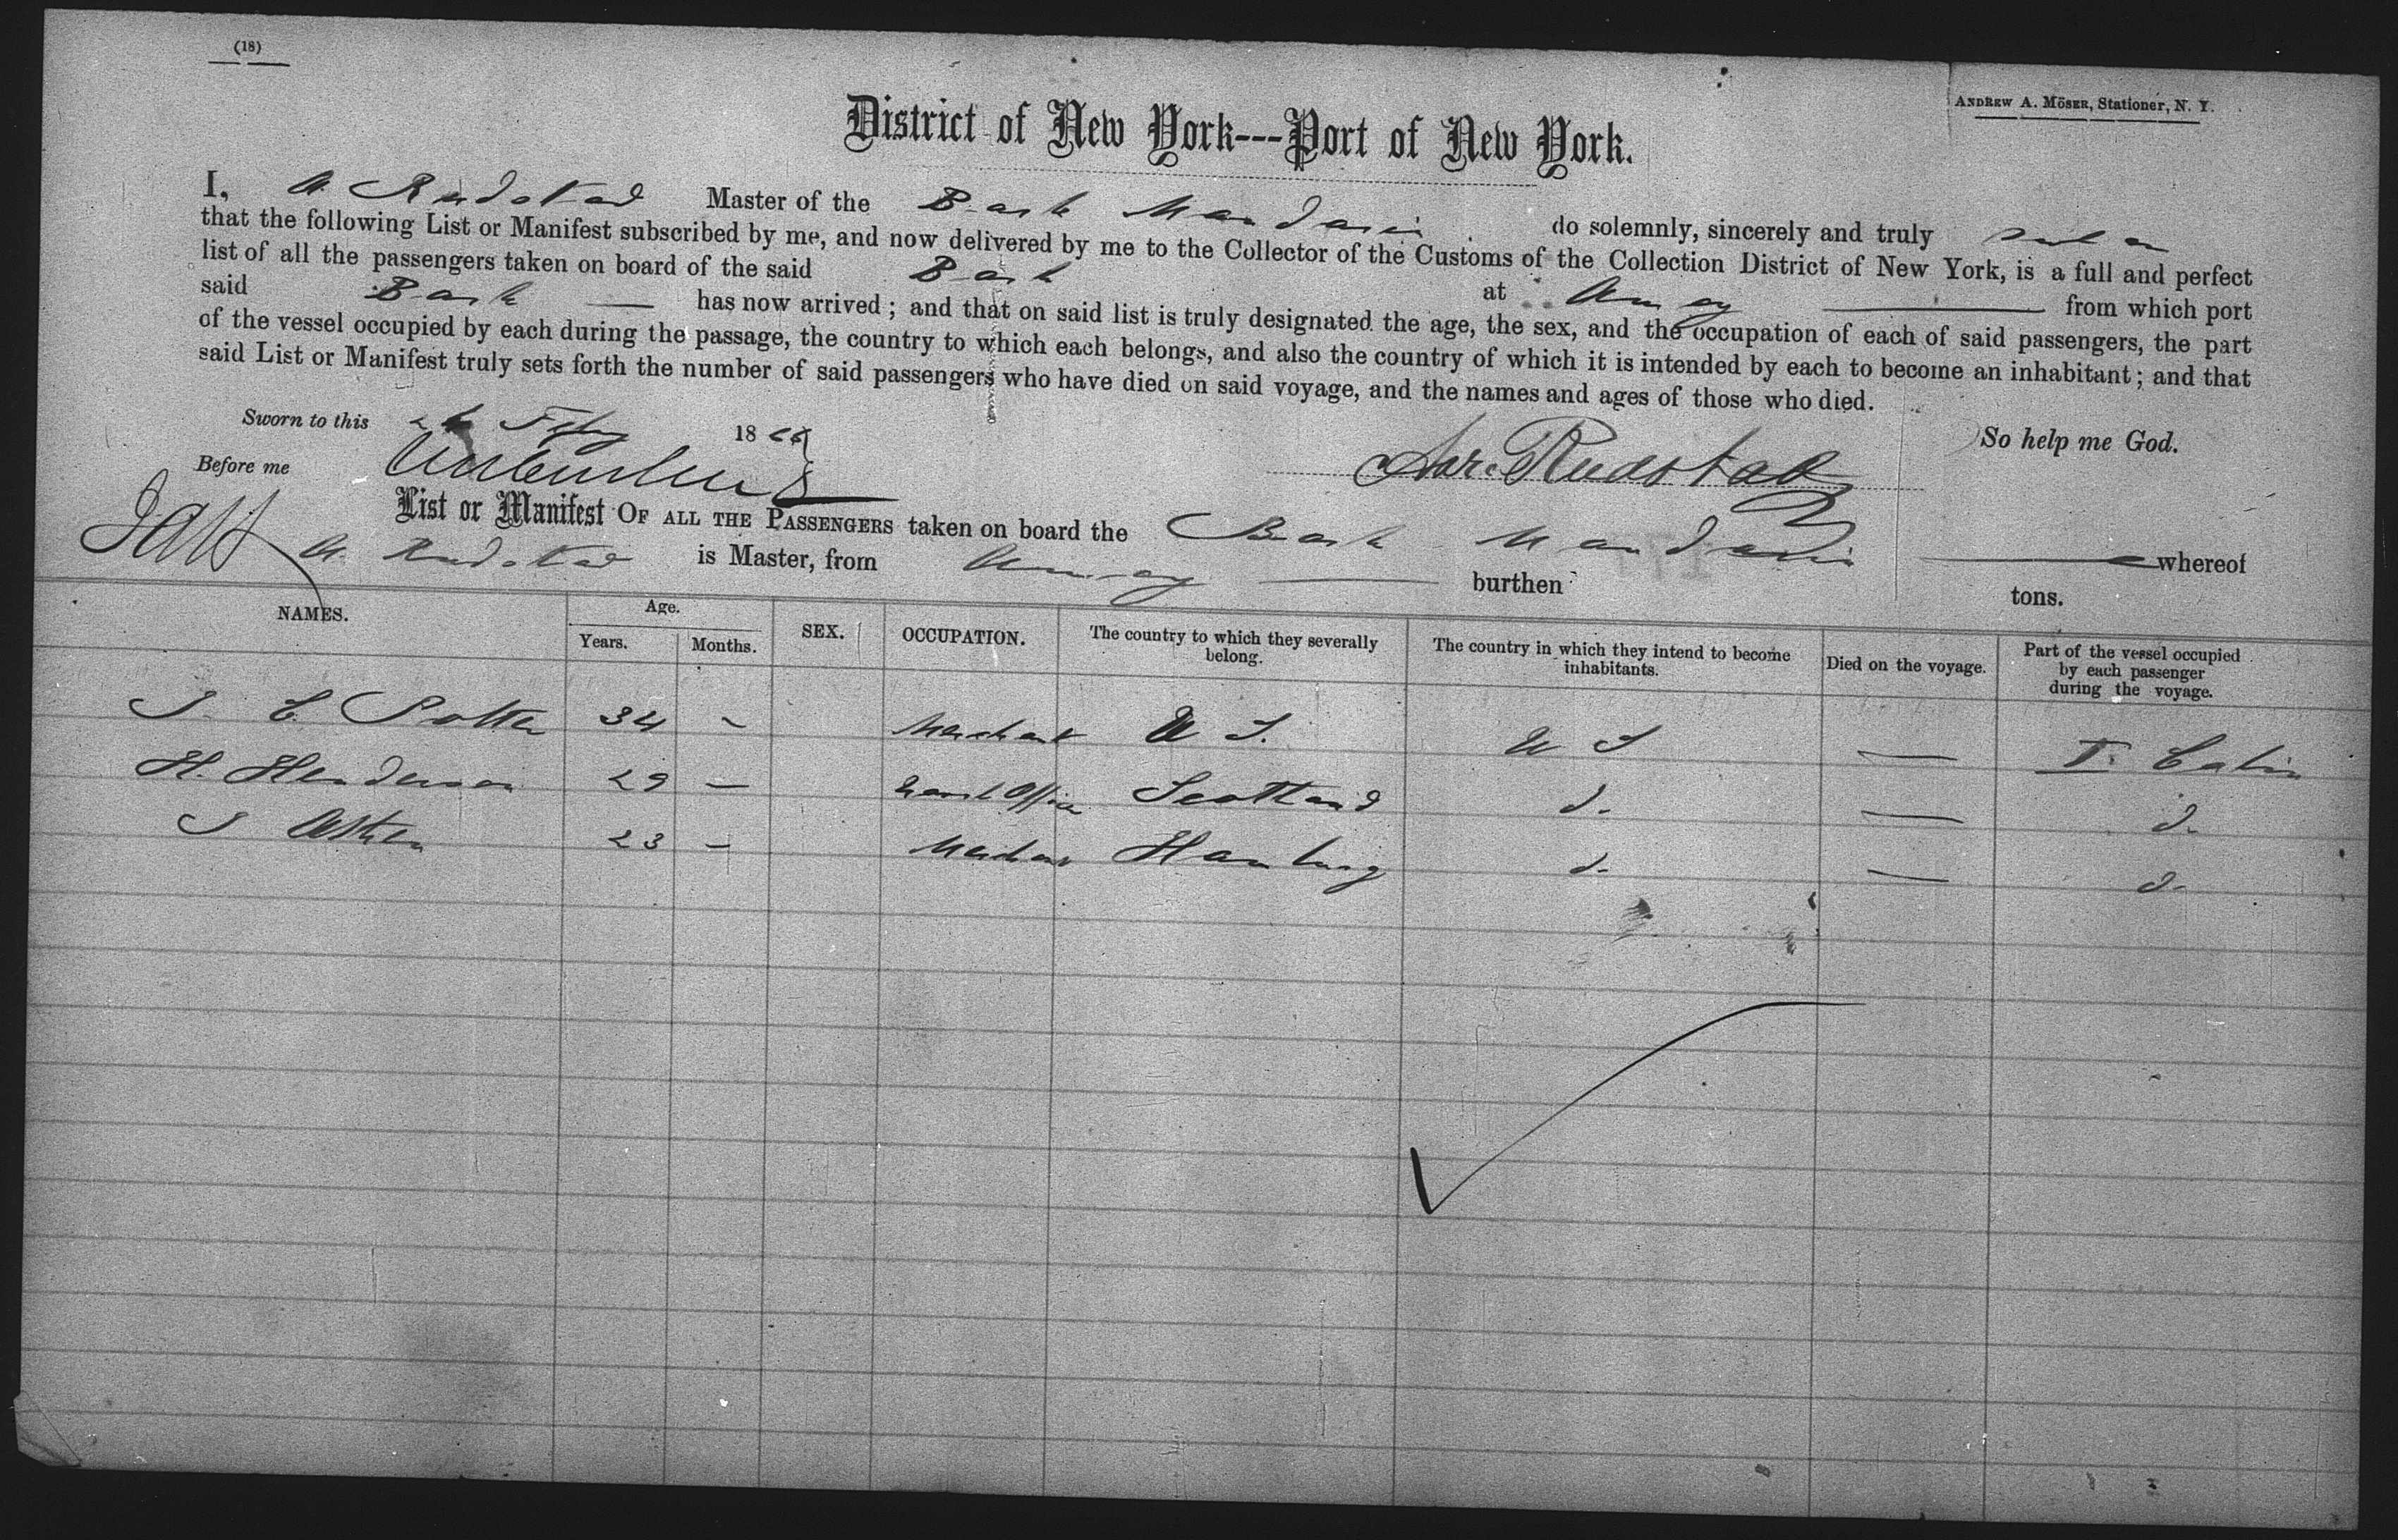 (18)
ANDREW A. MÖSER, Stationer, N. Y.
District of New York---Port of New York.
I, A. Rudstad Master of the Bark Mandarin do solemnly, sincerely and truly
that the following List or Manifest subscribed by me, and now delivered by me to the Collector of the Customs of the Collection District of New York, is a full and perfect
list of all the passengers taken on board of the said Bark at Amoy from which port
said Bark has now arrived; and that on said list is truly designated the age, the sex, and the occupation of each of said passengers, the part
of the vessel occupied by each during the passage, the country to which each belongs, and also the country of which it is intended by each to become an inhabitant; and that
said List or Manifest truly sets forth the number of said passengers who have died on said voyage, and the names and ages of those who died.
Sworn to this 18 So help me God.
Before me Rudstad
List or Manifest OF ALL THE PASSENGERS taken on board the Bark Mandarin whereof
A. Rudstad is Master, from Amoy burthen tons.
NAMES. Age. Years. Months. SEX. OCCUPATION. The country to which they severally belong. The country in which they intend to become inhabitants. Died on the voyage. Part of the vessel occupied by each passenger during the voyage.
34 - Merchant U S. U S — I. Cabin
H. Henderson 29 — Scotland d. — d.
23 - Merchant Hamburg d. — d.